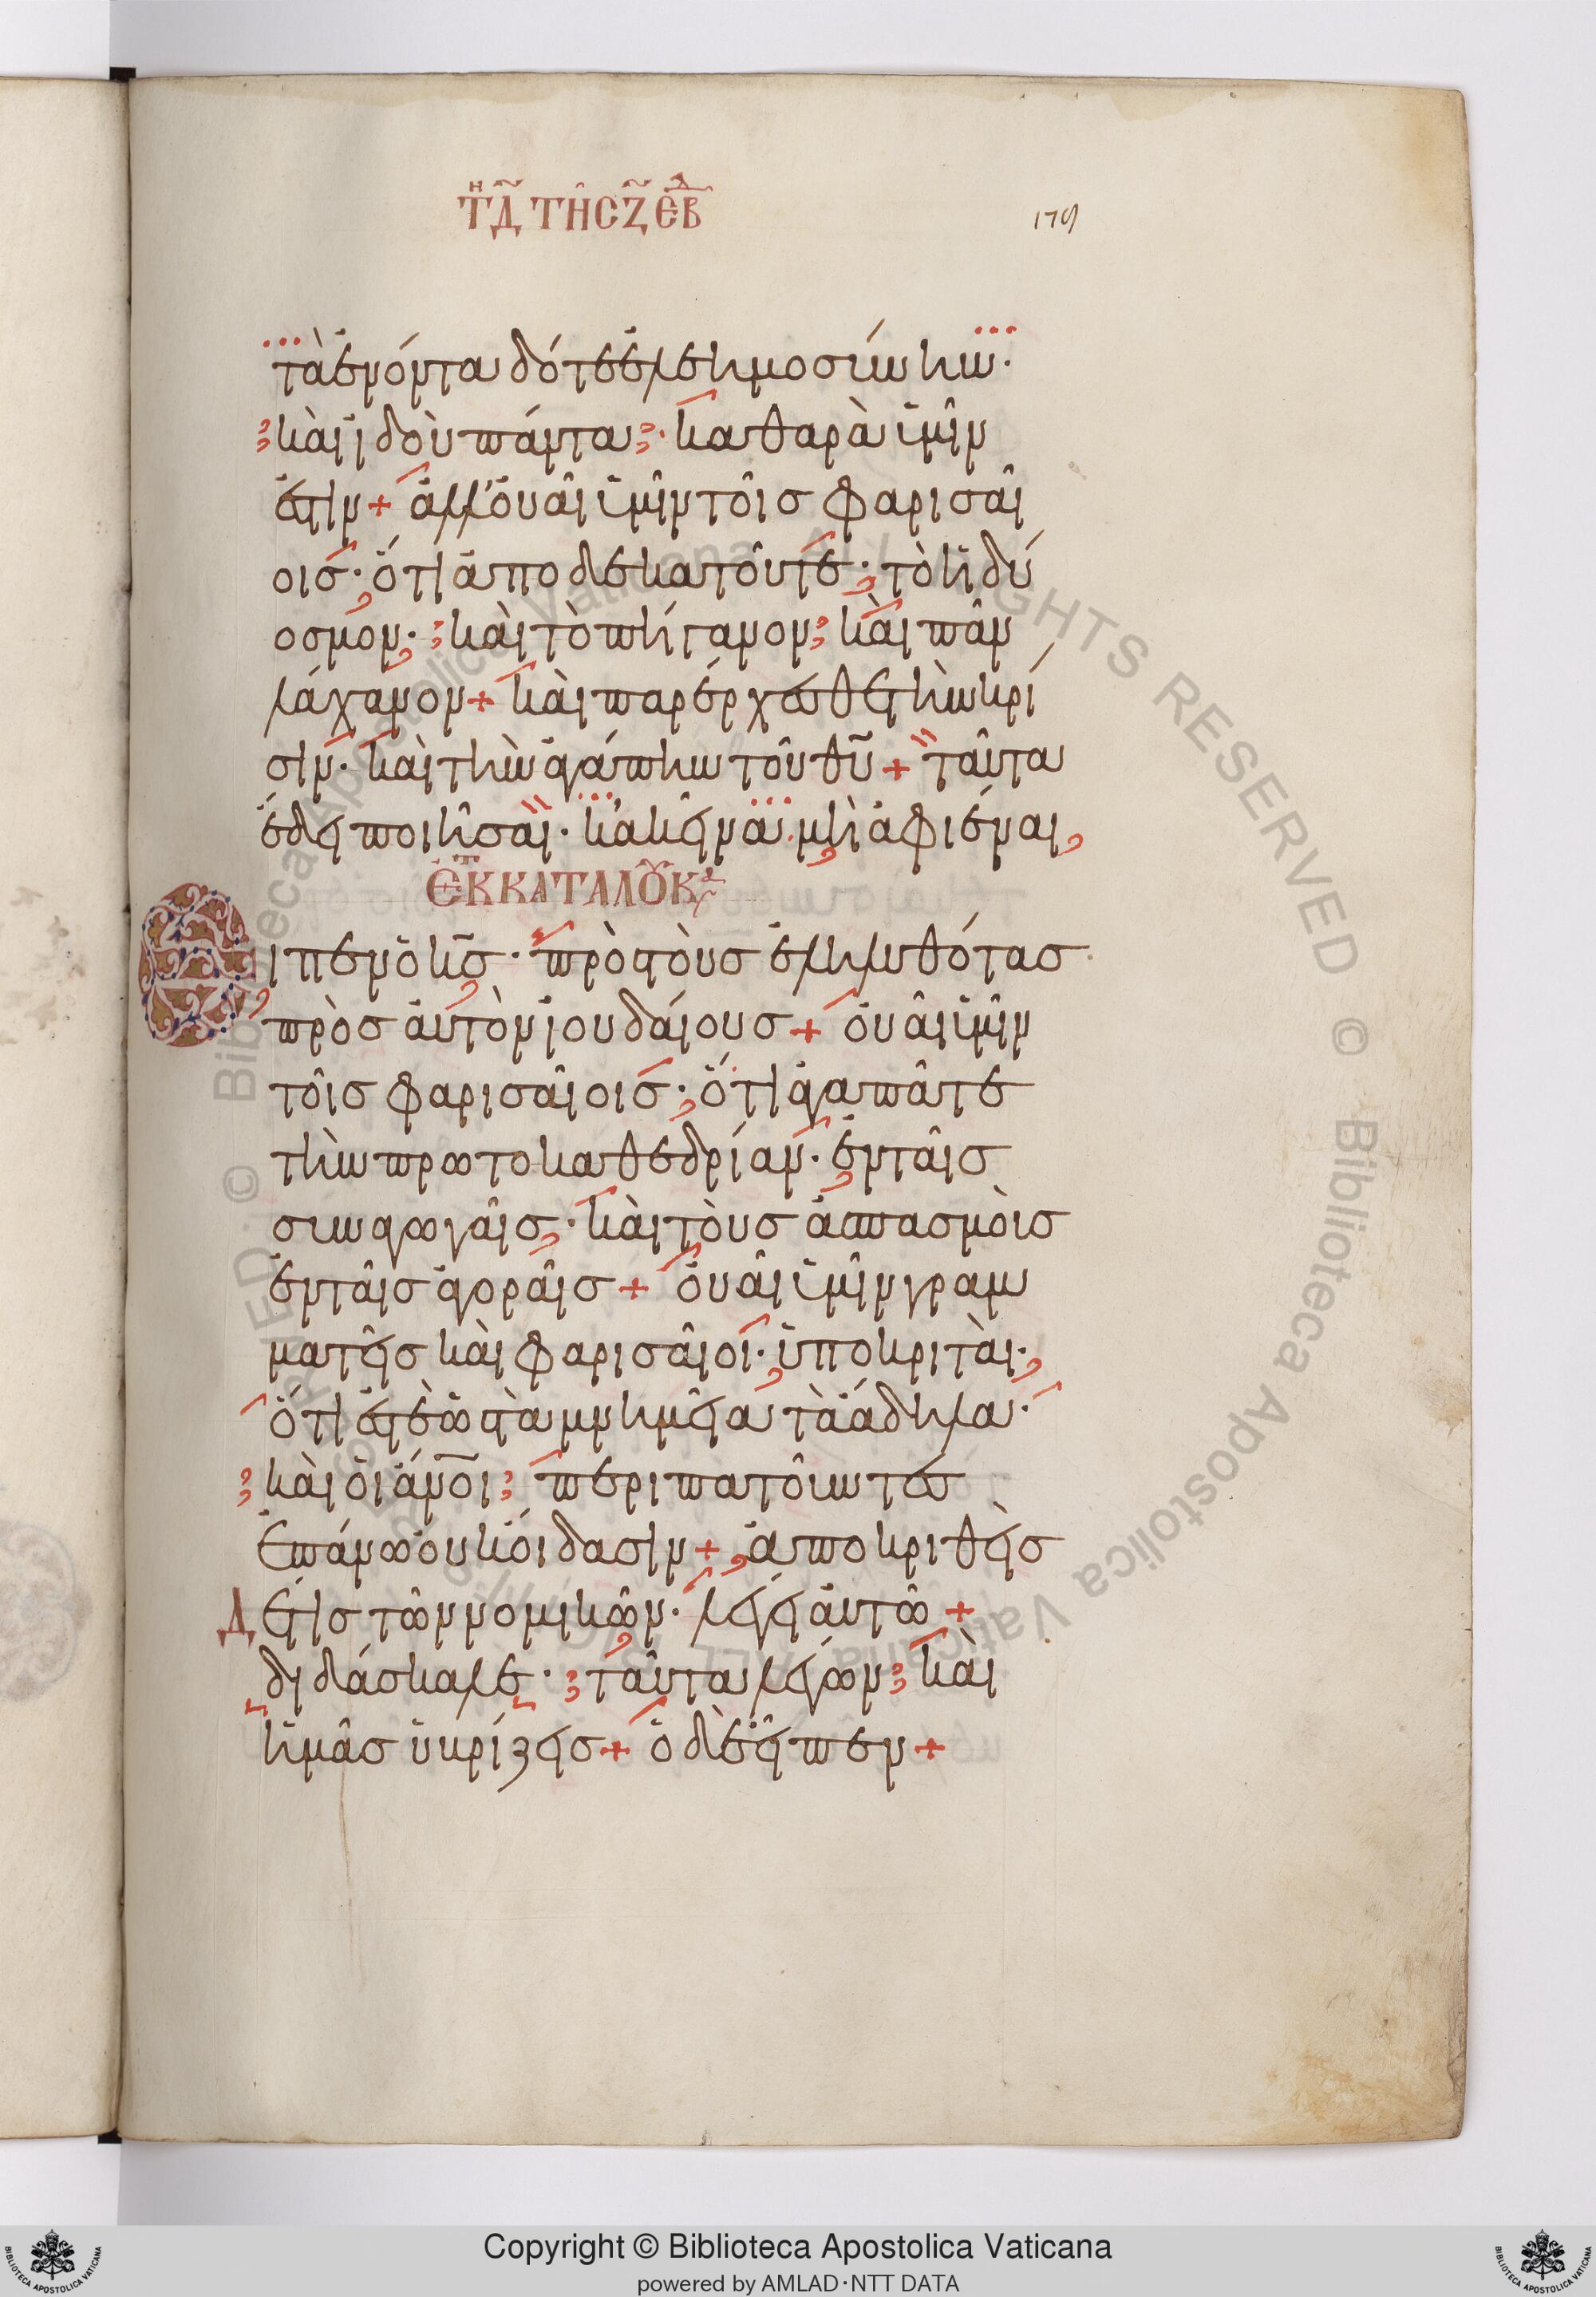 Τῇ Δ τῆς Ζ ἑβδ
179
τὰ ἐνόντα δότε ἐλεημοσύνην·
καὶ ἰδοὺ πάντα· καθαρὰ ὑμῖν
ἐστιν + ἀλλ' οὐαὶ ὑμῖν τοῖς φαρισαί
οις· ὅτι ἀποδεκατοῦτε· τὸ ἡδύ
οσμον· καὶ τὸ πήγανον· καὶ πᾶν
λάχανον + καὶ παρέρχεσθε τὴν κρί
σιν· καὶ τὴν ἀγάπην τοῦ θῦ + ταῦτα
ἔδει ποιῆσαι· κἀκεῖνα μὴ ἀφιέναι,
ἐκ τοῦ κατὰ Λουκ
Εἶπεν ὁ κς· πρὸς τοὺς ἐληλυθότας
πρὸς αὐτὸν ἰουδαίους + οὐαὶ ὑμῖν
τοῖς φαρισαίοις· ὅτι ἀγαπᾶτε
τὴν πρωτοκαθεδρίαν· ἐν ταῖς
συναγωγαῖς· καὶ τοὺς ἀσπασμοὺς
ἐν ταῖς ἀγοραῖς + οὐαὶ ὑμῖν γραμ
ματεῖς καὶ φαρισαῖοι· ὑποκριταί·
ὅτι ἐστὲ ὡς τὰ μνημεῖα τὰ ἄδηλα·
καὶ οἱ ἄνοι περιπατοῦντες
ἐπάνω οὐκ οἴδασιν + ἀποκριθεὶς
Δέ τις τῶν νομικῶν· λέγει αὐτῷ +
διδάσκαλε· ταῦτα λέγων καὶ
ἡμᾶς ὑβρίζεις + ὁ δὲ εἶπεν +
Copyright © Biblioteca Apostolica Vaticana
powered by AMLAD·NTT DATA